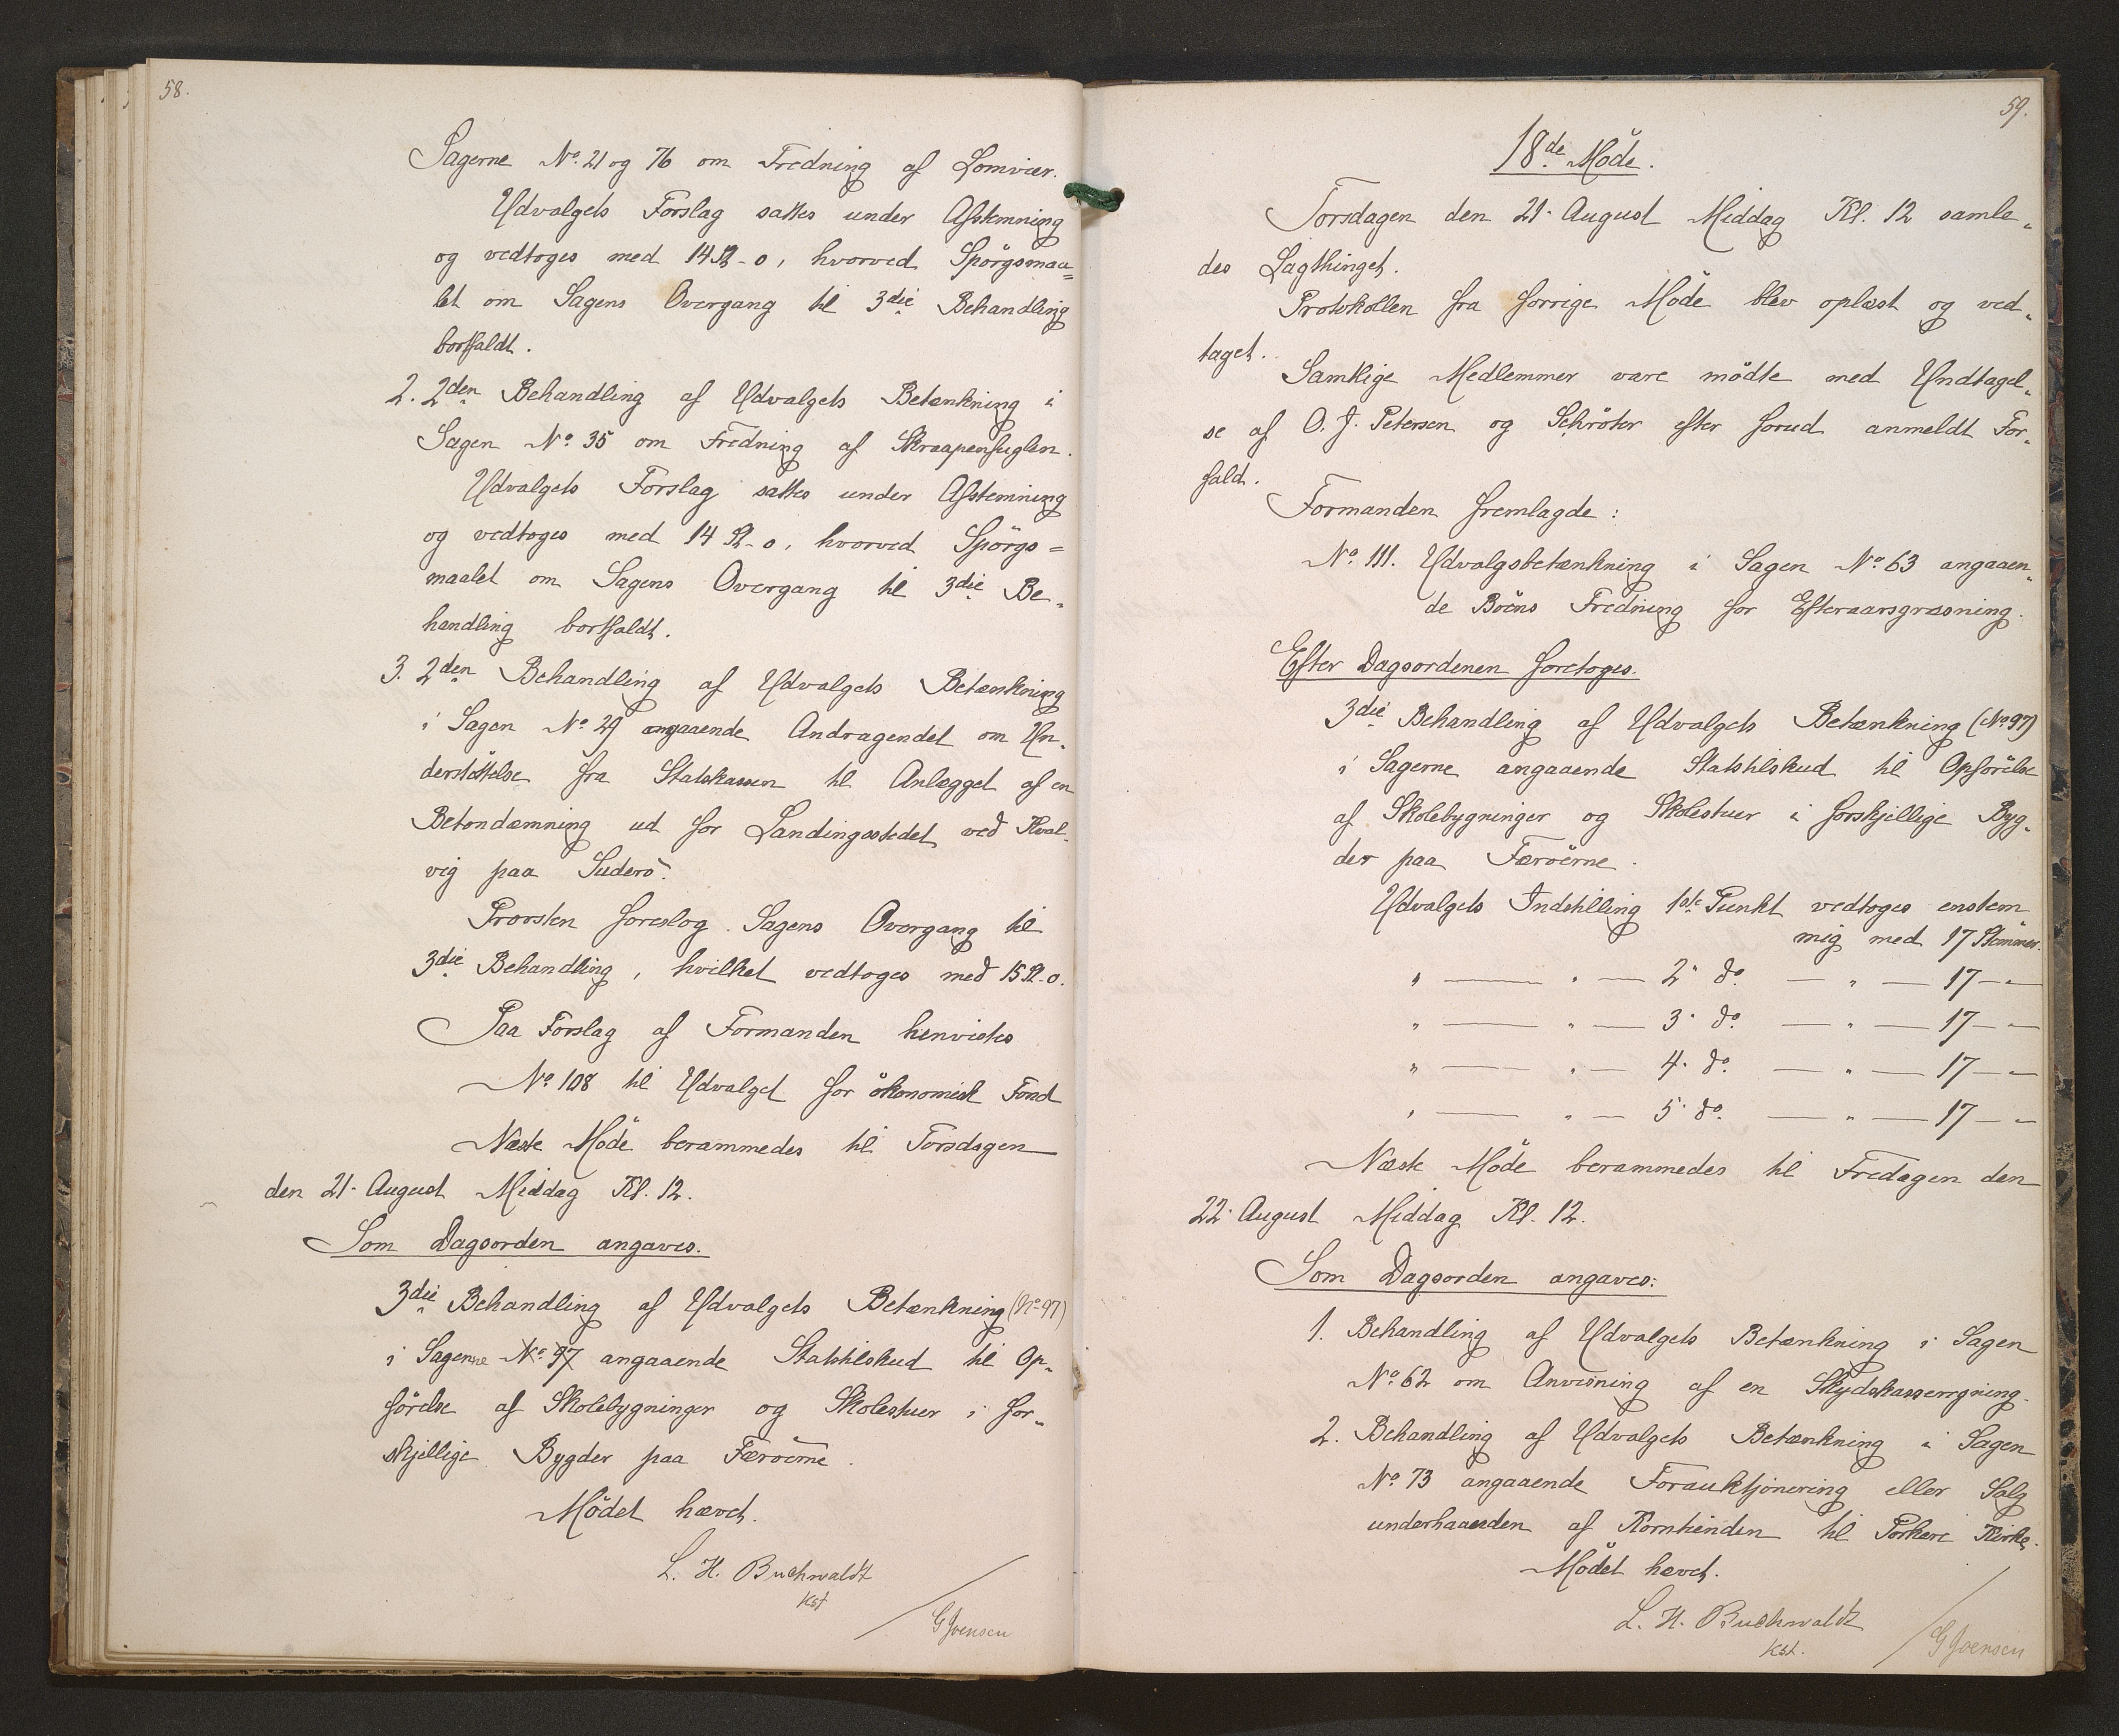 58.
Sagerne No. 21 og 76 om Fredning af Lomvier.
Udvalgets Forslag sattes under Afstemning
og vedtoges med 14 St - 0, hvorved Spörgsmaa=
let om Sagens Overgang til 3die Behandling
bortfaldt.
2. 2den Behandling af Udvalgets Betænkning i
Sagen No. 35 om Fredning af Skraapenfuglen.
Udvalgets Forslag sattes under Afstemning
og vedtoges med 14 St - 0, hvorved Spörgs=
maalet om Sagens Overgang til 3die Be„
handling bortfaldt.
3. 2den Behandling af Udvalgets Betænkning
i Sagen No. 29 angaaende Andragendet om Un„
derstöttelse fra Statskassen til Anlægget af en
Betondæmning ud for Landingsstedet ved Hval„
vig paa Suderö.
Provsten foreslog Sagens Overgang til
3die Behandling, hvilket vedtoges med 15 St - 0.
Paa Forslag af Formanden henvistes
No. 108 til Udvalget for ökonomisk Fond
Næste Möde berammedes til Torsdagen
den 21. August Middag Kl. 12.
Som Dagsorden angaves.
3die Behandling af Udvalgets Betænkning (No. 97)
i Sagerne No. 97 angaaende Statstilskud til Op„
förelse af Skolebygninger og Skolestuer i for„
skjellige Bygder paa Færöerne.
Mödet hævet.
L. H. Buchwaldt
kst
/ G Joensen
59.
18de Möde.
Torsdagen den 21. August Middag Kl. 12 samle„
des Lagthinget.
Protokollen fra forrige Möde blev oplæst og ved„
taget.
Samtlige Medlemmer vare mödte med Undtagel„
se af O. J. Petersen og Schröter efter forud anmeldt For„
fald.
Formanden fremlagde:
No. 111. Udvalgsbetænkning i Sagen No. 63 angaaen„
de Böens Fredning for Efteraarsgræsning.
Efter Dagsordenen foretoges.
3die Behandling af Udvalgets Betænkning (No. 97)
i Sagerne angaaende Statstilskud til Opförelse
af Skolebygninger og Skolestuer i forskjellige Byg„
der paa Færöerne.
Udvalgets Indstilling 1ste Punkt vedtoges enstem„
mig med 17 Stemmer.
„ — „ — 2. do. — „ — 17 — „ —
„ — „ — 3. do. — „ — 17 — „ —
„ — „ — 4. do. — „ — 17 — „ —
„ — „ — 5. do. — „ — 17 — „ —
Næste Möde berammedes til Fredagen den
22. August Middag Kl. 12.
Som Dagsorden angaves:
1. Behandling af Udvalgets Betænkning i Sagen
No. 62 om Anvisning af en Skydskasseregning.
2. Behandling af Udvalgets Betænkning i Sagen
No. 73 angaaende Forauktjonering eller Salg
underhaanden af Korntienden til Porkere Kirke.
Mödet hævet.
L. H. Buchwaldt
kst.
/ G Joensen